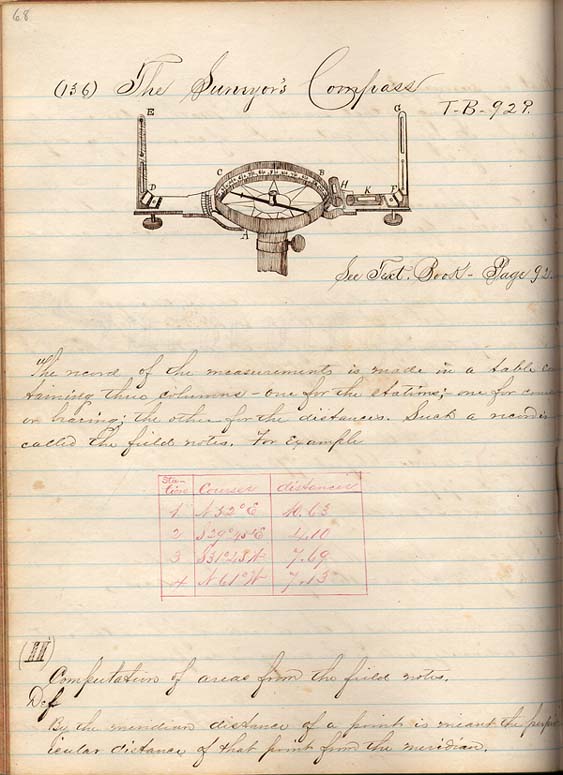 68
(136) The Surveyor's Compass
T-B-92P.
E
G
C
B
H
D
K
F
A
See Text. Book - Page 92.
The record of the measurements is made in a table con
taining three columns - one for the stations; one for courses
or bearing; the other for the distances. Such a record is
called the field notes. For Example
Sta-
tions Courses distances
1 N 52° E 10.63
2 S 29° 45' E 4.10
3 S 31° 45 W 7.69
4 N 61° W 7.13
Computation of areas from the field notes.
Def
By the meridian distance of a point is meant the perpend
icular distance of that point from the meridian.